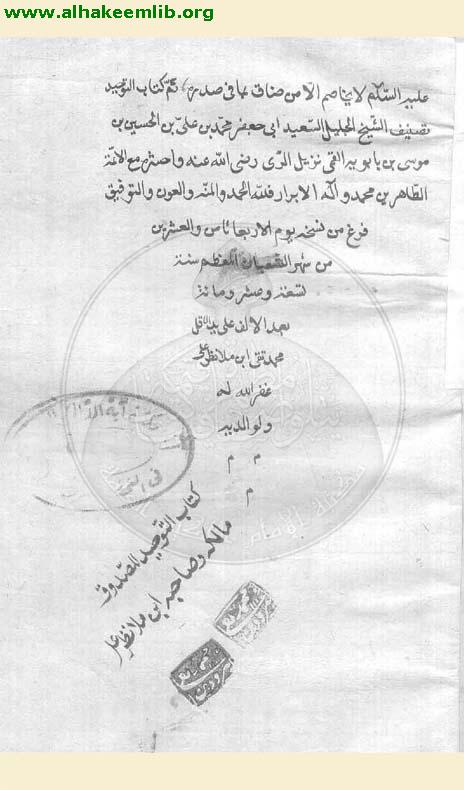 www.alhakeemlib.org
عليه السلام لا يخاصم الا من ضاق بما في صدره تم كتاب التوحيد
تصنيف الشيخ الجليل السعيد ابي جعفر محمد بن علي بن الحسين بن
موسى بن بابويه القمي نزيل الري رضي الله عنه وحشره مع الائمة
الطاهرين محمد وآله الابرار فلله الحمد والمنه والعون والتوفيق
فرغ من نسخه يوم الاربعا ثامن والعشرين
من شهر الشعبان المعظم سنة
تسعة وعشر ومائة
بعد الالف على يد الاقل
محمد تقي ابن ملا نظر علي
غفر الله له
ولوالديه
م م
م
كتاب التوحيد للصدوق
مالكه وصاحبه ابن ملا نظر علي